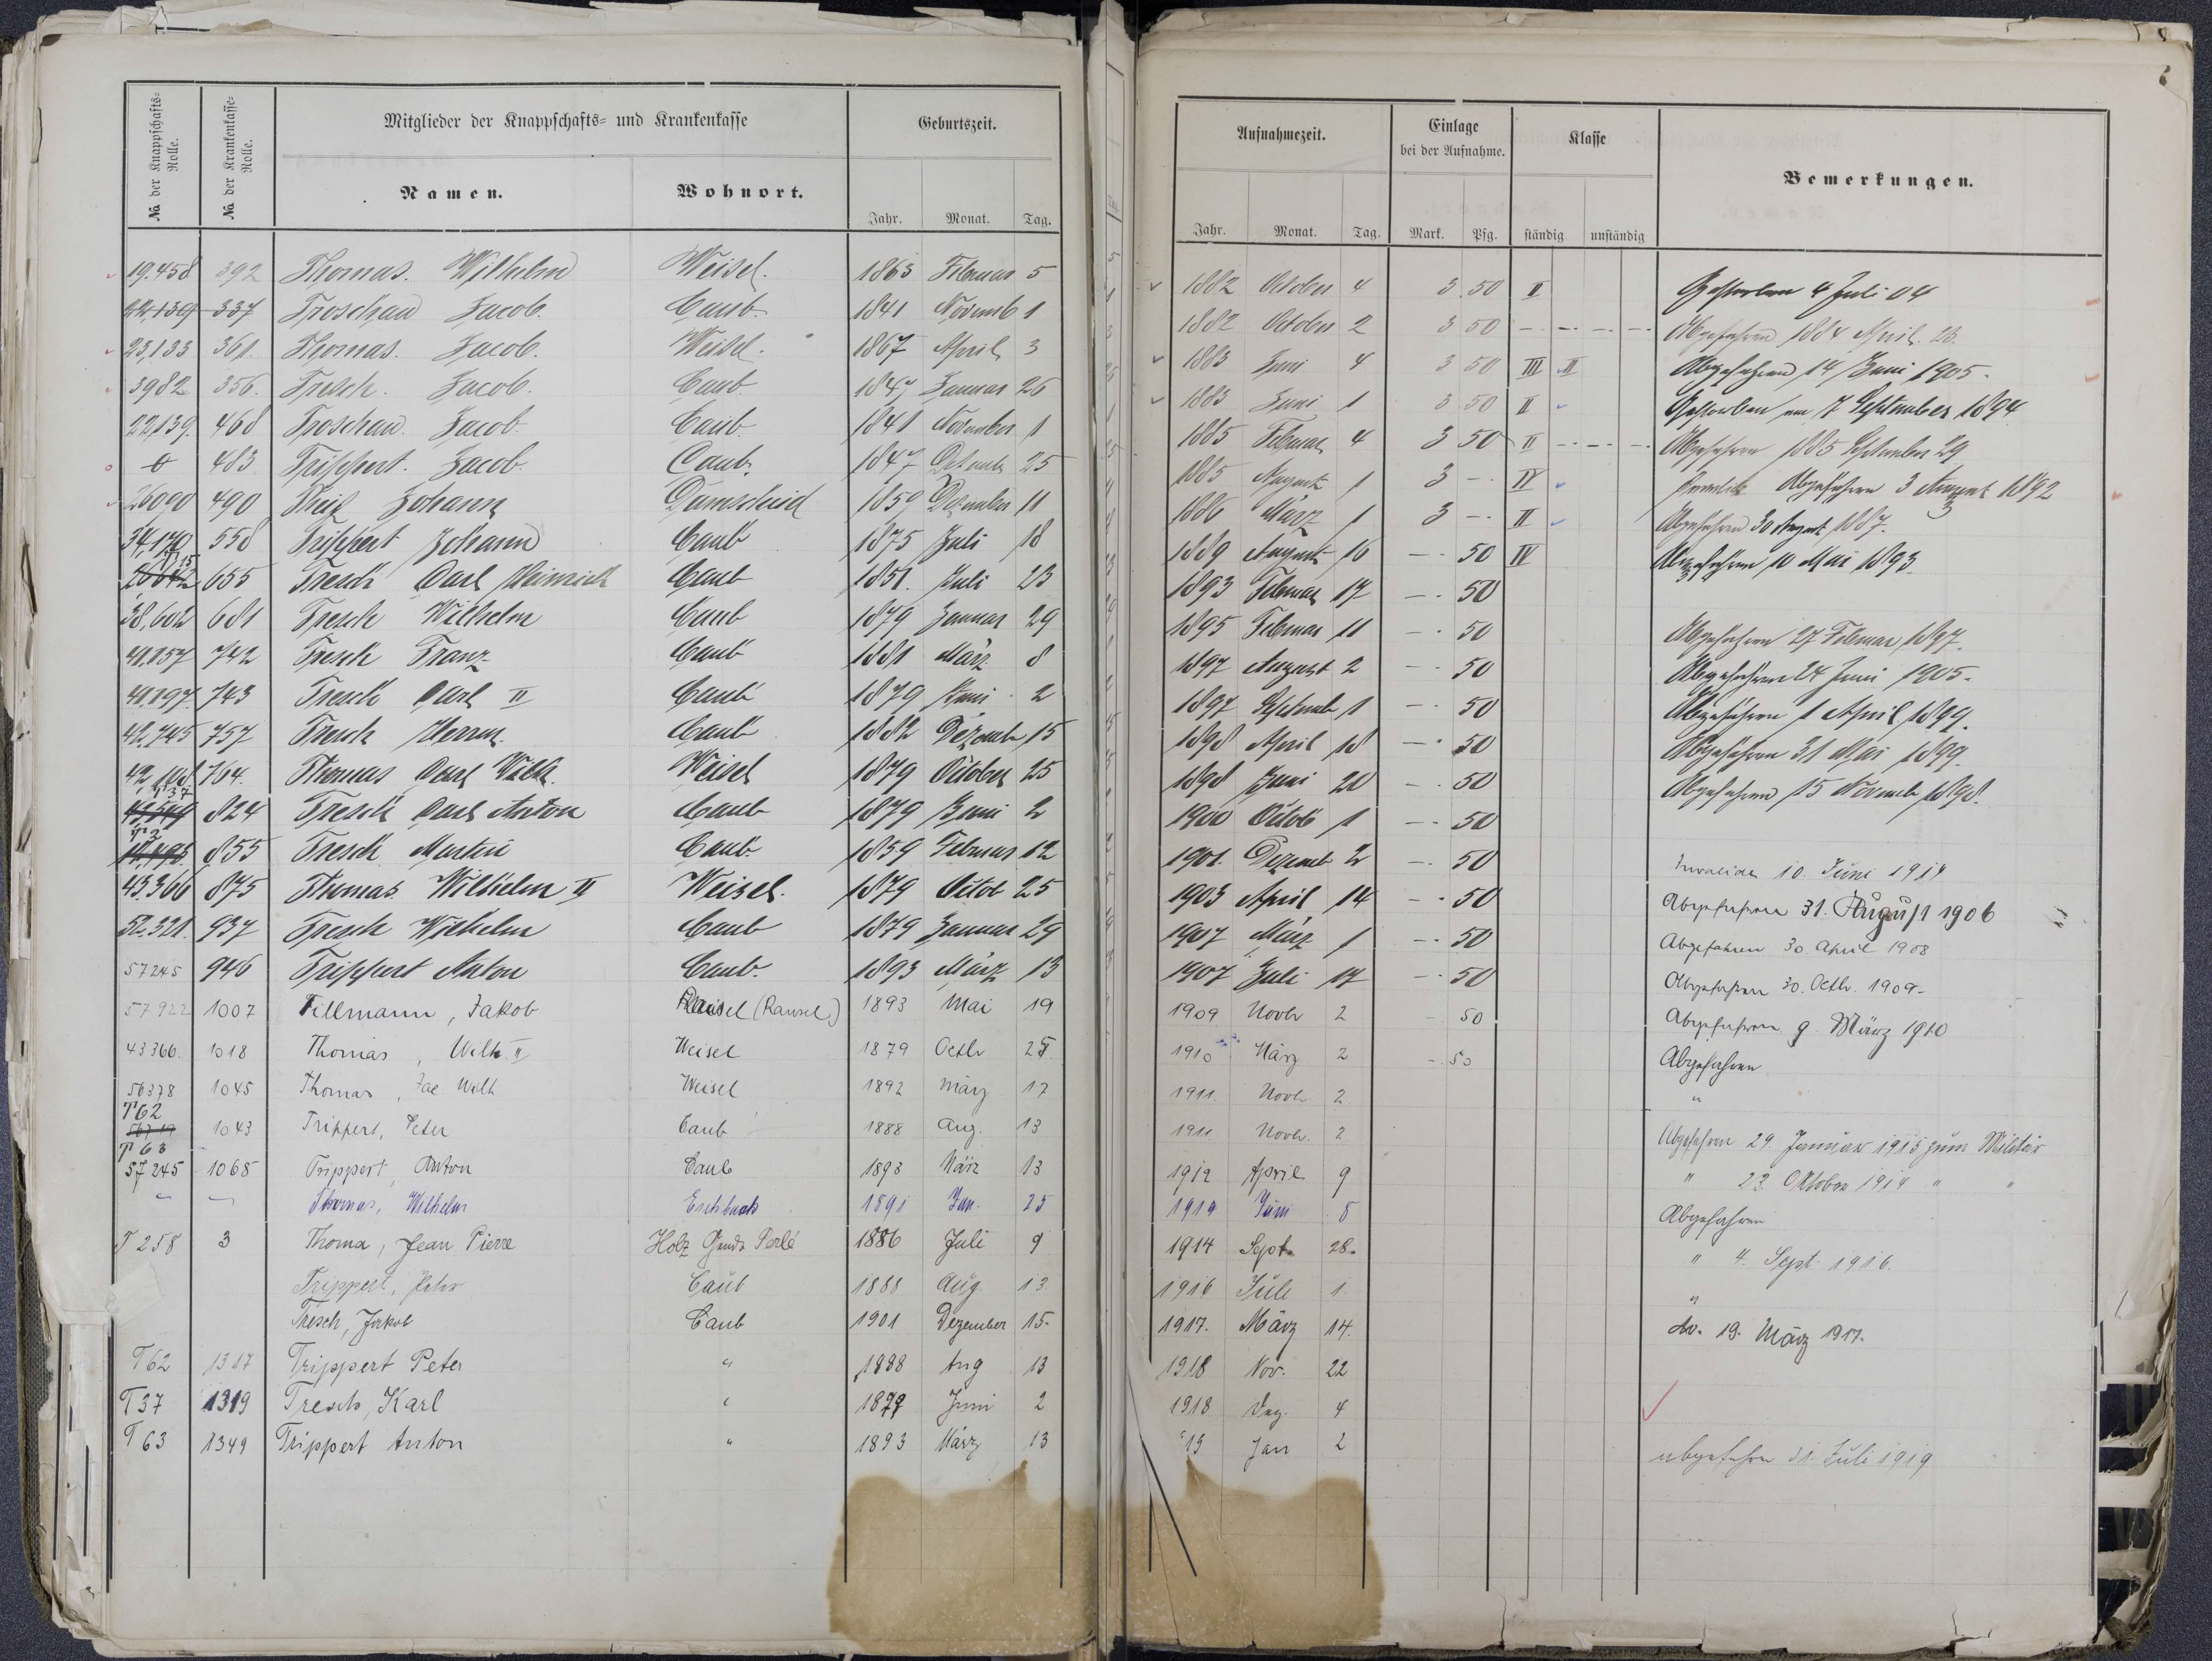 No der Knappschafts-Rolle.
No der Krankenkasse-Rolle.
Mitglieder der Knappschafts- und Krankenkasse
Namen.
Wohnort.
Geburtszeit.
Jahr. Monat. Tag.
Aufnahmezeit.
Jahr. Monat. Tag.
Einlage
bei der Aufnahme.
Mark. Pfg.
Klasse
ständig unständig
Bemerkungen.
19.458 392 Thomas. Wilhelm Weisel. 1863 Februar 5 1882 October 4 3.50 II Gestorben 4 Juli 04
22,139 337 Troschau Jacob. Caub. 1841 Novemb 1 1882 October 2 3 50 Abgefahren 1884 April. 23.
23,133 361. Thomas. Jacob. Weisel. 1867 April 3 1883 Juni 4 3 50 III II Abgefahren 14 Juni 1905.
3982 356. Tresch. Jacob. Caub. 1847 Januar 26 1883 Juni 1 3 50 II Gestorben am 7 September 1894
22,139. 468 Troschau. Jacob Caub. 1841 November 1 1885 Februar 4 3 50 II Abgefahren 1885 September 29
483 Trippert. Jacob. Caub. 1847 25 1885 August 1 3 - IV Abgefahren 3 August 1892
26090 490 Theis Johann Damscheid 1859 Dezember 11 1886 März 1 3 - II Abgefahren 30 August 1887.
34,170 558 Trippert Johann Caub 1875 Juli 18 1889 August 16 - 50 IV Abgefahren 10 Mai 1893
655 Tresch Carl Heinrich Caub 1851. Juli 23 1893 Februar 17 - 50
38,602 681 Tresch Wilhelm Caub 1879 Januar 29 1895 Februar 11 - 50 Abgefahren 27 Februar 1897.
41,857 742 Tresch Franz Caub 1881 März 8 1897 August 2 - 50 Abgefahren 24 Juni 1905.
41,897. 743 Tresch Carl II Caub 1879 Juni 2 1897 Septemb 1 - 50 Abgefahren 1 April 1899.
42,745 757 Tresch Herrm. Caub 1882 Dezemb 15 1898 April 18 - 50 Abgefahren 31 Mai 1899.
764. Thomas Carl Wilh. Weisel 1879 October 25 1898 Juni 20 - 50 Abgefahren 15 Novemb 1898.
T 37
824 Tresch Carl Anton Caub 1879 Juni 2 1900 Octob 1 - 50
T 2
855 Tresch Martin Caub. 1859 Februar 12 1901. Dezemb 2 - 50 Invalide 10. Juni 1914
43366 875 Thomas Wilhelm II Weisel. 1879 Octob 25 1903 April 14 - 50 Abgefahren 31. August 1906
52.321. 937 Tresch Wilhelm Caub 1879 Januar 29 1907 März 1 - 50 Abgefahren 30. April 1908
57245 946 Trippert Anton Caub. 1893 März 13 1907 Juli 17 - 50 Abgefahren 30. Octbr. 1909-
57922 1007 Tillmann, Jakob (Ransel) 1893 Mai 19 1909 Novbr 2 - 50 Abgefahren 9. März 1910
43366. 1018 Thomas, Wilh. II Weisel 1879 Octbr 25 1910 März 2 - 50 Abgefahren
56378 1045 Thomas, Jac Wilh Weisel 1892 März 17 1911. Novbr 2 "
T 62
1043 Trippert, Peter Caub 1888 Aug. 13 1911 Novbr. 2 Abgefahren 29. Januar 1915 zum Militär
T 63
57245 1065 Trippert, Anton Caub 1893 März 13 1912 April 9 " 23. Oktober 1914 " "
Thomas, Wilhelm Eschbach 1891 Jan. 25 1914 Juni 8 Abgefahren
T 258 3 Thoma, Jean Pierre Holz Gmde Perlé 1886 Juli 9 1914 Sept. 28. " 4. Sept. 1916.
Trippert, Peter Caub 1888 Aug. 13 1916 Juli 1. "
Tresch, Jakob Caub 1901 Dezember 15. 1917. März 14. do. 19. März 1917.
T62 1317 Trippert Peter " 1888 Aug 13 1918 Nov. 22
T37 1319 Tresch, Karl " 1879 Juni 2 1918 Dez. 4
T 63 1349 Trippert Anton " 1893 März 13 19 Jan 2 abgefahren 31. Juli 1919